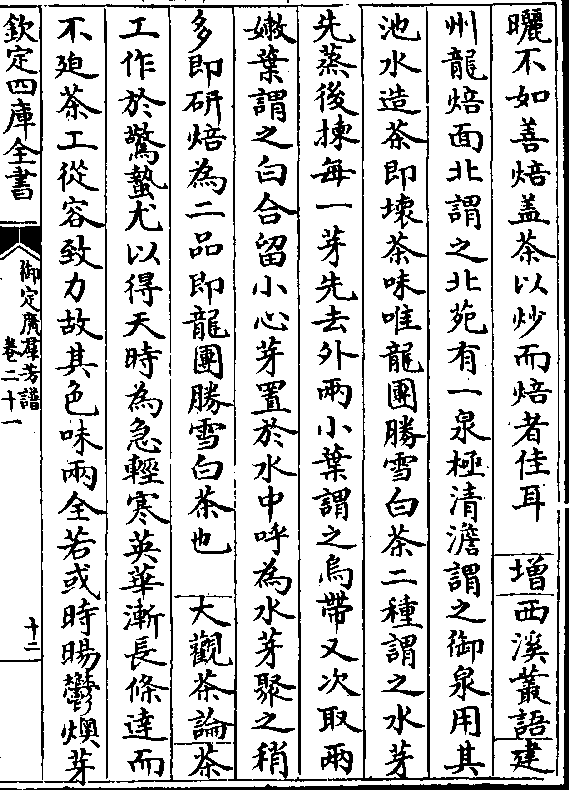 曬不如善焙盖茶以炒而焙者佳耳 增 西溪叢語 建
州龍焙面北謂之北苑有一泉極清澹謂之御泉用其
池水造茶即壊茶味唯龍團勝雪白茶二種謂之水芽
先蒸後揀每一芽先去外兩小葉謂之烏帶又次取兩
嫩葉謂之白合留小心芽置於水中呼為水芽聚之稍
多即研焙為二品即龍團勝雪白茶也 大觀茶論 茶
工作於驚蟄尤以得天時為急輕寒英華漸長條達而
不廹茶工從容致力故其色味兩全若或時暘鬱燠芽
欽定四庫全書
御定廣羣芳譜
卷二十一
十二